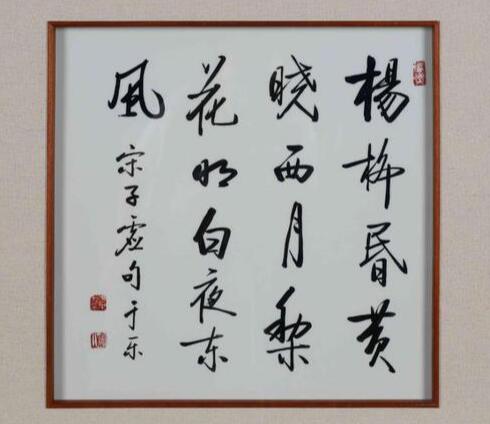 楊柳昬黄
晓西月梨
花明白夜东
風
宋子虚句于乐